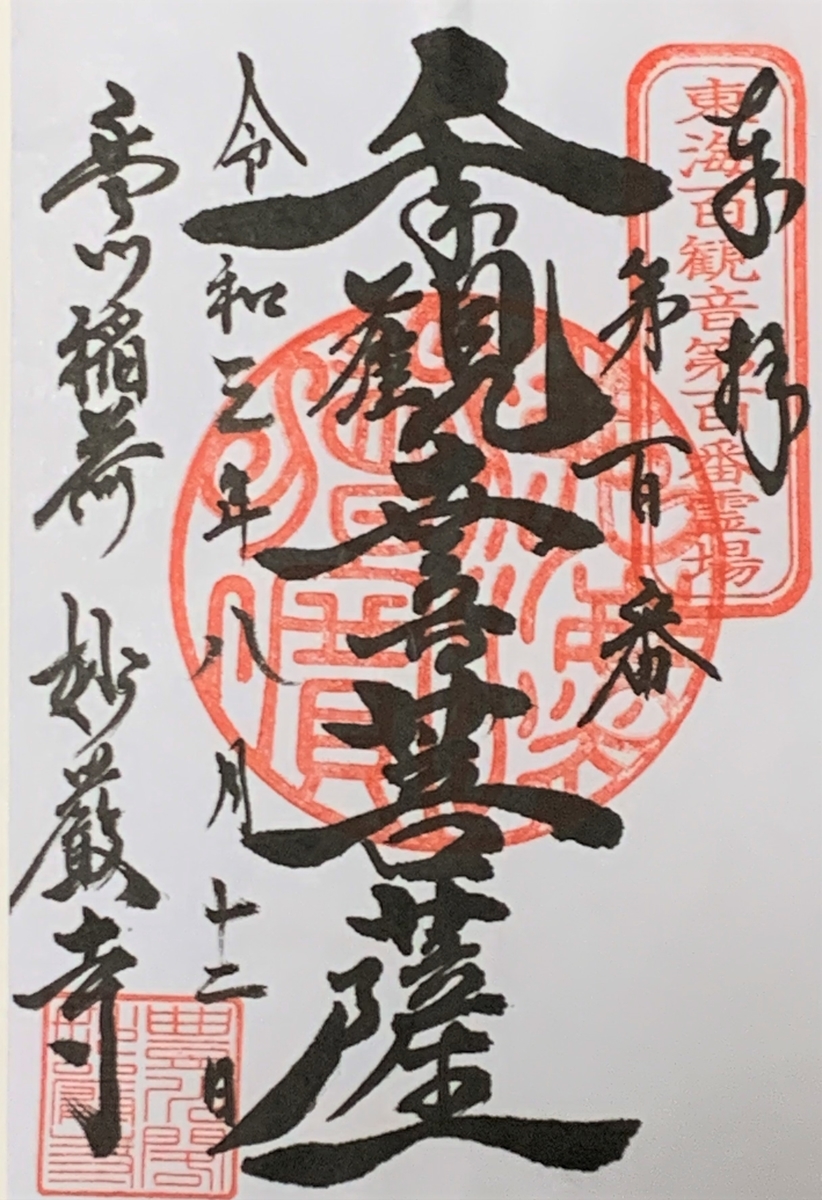 東海百観音第百番霊場
奉拝
第百番
千手觀世音菩薩
令和三年八月十二日
豊川稲荷 妙厳寺